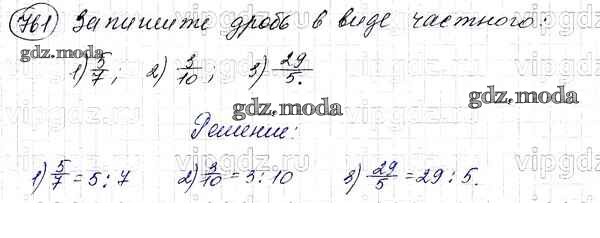 761) Запишите дробь в виде частного:
gdz.moda
1) 5/7; 2) 3/10; 3) 29/5.
gdz.moda gdz.moda
Решение:
vipgdz
1) 5/7 = 5 : 7 2) 3/10 = 3 : 10 3) 29/5 = 29 : 5.